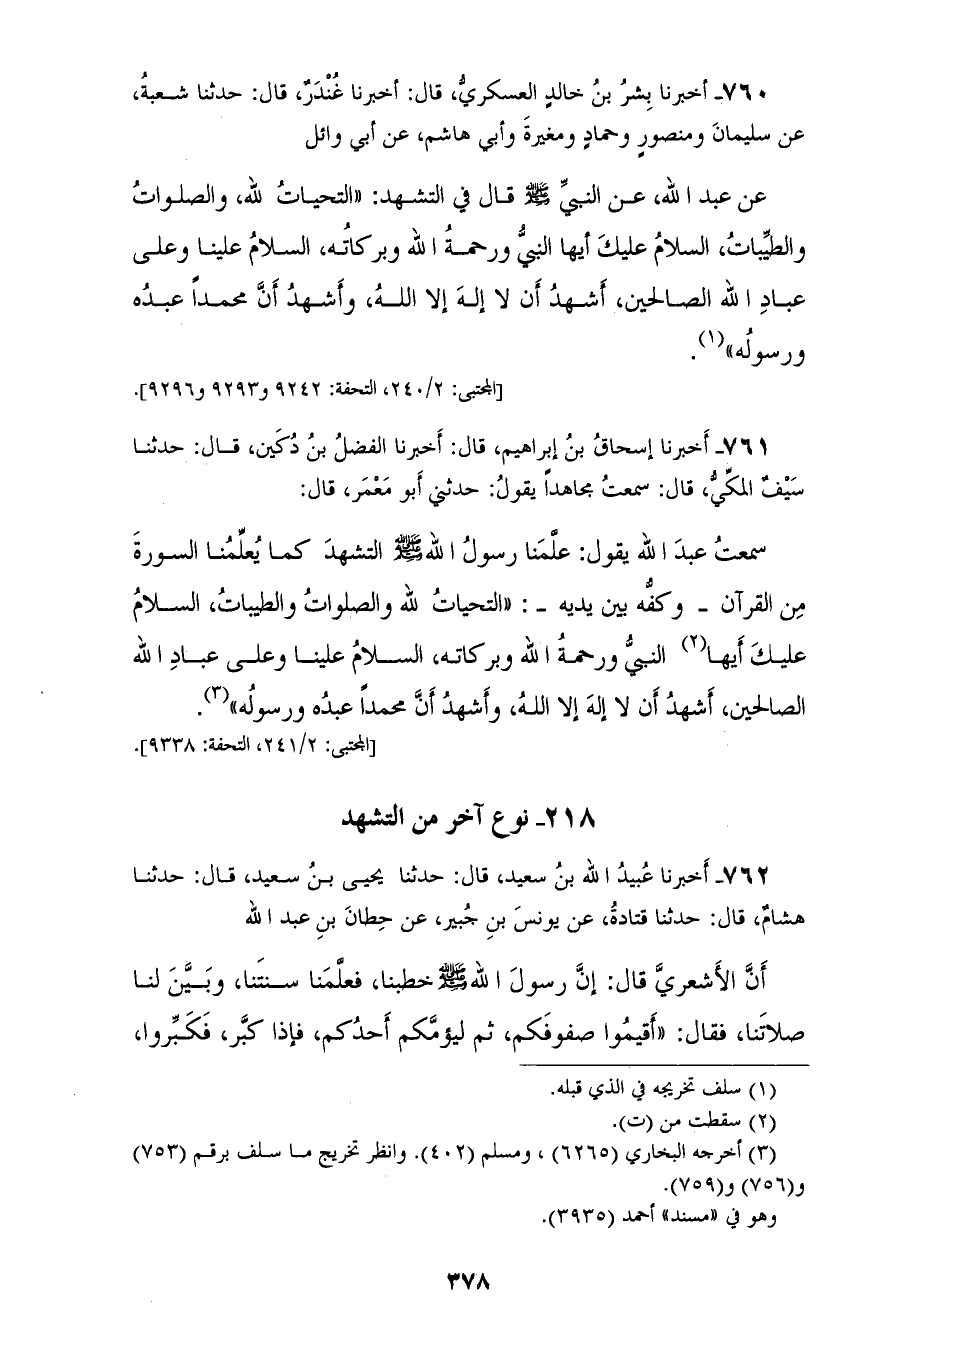 ٧٦٠ـ أخبرنا بِشرُ بنُ خالدٍ العسكريُّ، قال: أخبرنا غُنْدَرٌ، قال: حدثنا شعبةُ،
عن سليمانَ ومنصورٍ وحمادٍ ومغيرةَ وأبي هاشم، عن أبي وائل
عن عبد الله، عن النبيِّ ﷺ قال في التشهد: «التحياتُ لله، والصلواتُ
والطيِّباتُ، السلامُ عليكَ أيها النبيُّ ورحمةُ الله وبركاتُه، السلامُ علينا وعلى
عبادِ الله الصالحين، أشهدُ أن لا إلهَ إلا اللهُ، وأشهدُ أنَّ محمداً عبدُه
ورسولُه»(١).
[المجتبى: ٢٤٠/٢، التحفة: ٩٢٤٢ و٩٢٩٣ و٩٢٩٦].
٧٦١ـ أَخبرنا إسحاقُ بنُ إبراهيم، قال: أَخبرنا الفضلُ بنُ دُكَين، قال: حدثنا
سَيْفٌ المكيُّ، قال: سمعتُ مجاهداً يقولُ: حدثني أَبو مَعْمَر، قال:
سمعتُ عبدَ الله يقول: علَّمَنا رسولُ الله ﷺ التشهدَ كما يُعلِّمُنا السورةَ
مِن القرآن - وكفُّه بين يديه - : «التحياتُ لله والصلواتُ والطيباتُ، السلامُ
عليكَ أَيها(٢) النبيُّ ورحمةُ الله وبركاته، السلامُ علينا وعلى عبادِ الله
الصالحين، أَشهدُ أن لا إلهَ إلا اللهُ، وأَشهدُ أنَّ محمداً عبدُه ورسولُه»(٣).
[المجتبى: ٢٤١/٢، التحفة: ٩٣٣٨].
٢١٨ـ نوع آخر من التشهد
٧٦٢ـ أَخبرنا عُبيدُ الله بنُ سعيد، قال: حدثنا يحيى بنُ سعيد، قال: حدثنا
هشامٌ، قال: حدثنا قتادةُ، عن يونسَ بنِ جُبير، عن حِطانَ بنِ عبد الله
أَنَّ الأَشعريَّ قال: إنَّ رسولَ الله ﷺ خطبنا، فعلَّمَنا سنتَنا، وبَيَّنَ لنا
صلاتَنا، فقال: «أَقيمُوا صفوفَكم، ثم ليؤمَّكم أَحدُكم، فإذا كبَّر، فَكَبِّروا،
(١) سلف تخريجه في الذي قبله.
(٢) سقطت من (ت).
(٣) أخرجه البخاري (٦٢٦٥) ، ومسلم (٤٠٢). وانظر تخريج ما سلف برقم (٧٥٣)
و(٧٥٦) و(٧٥٩).
وهو في «مسند» أحمد (٣٩٣٥).
٣٧٨